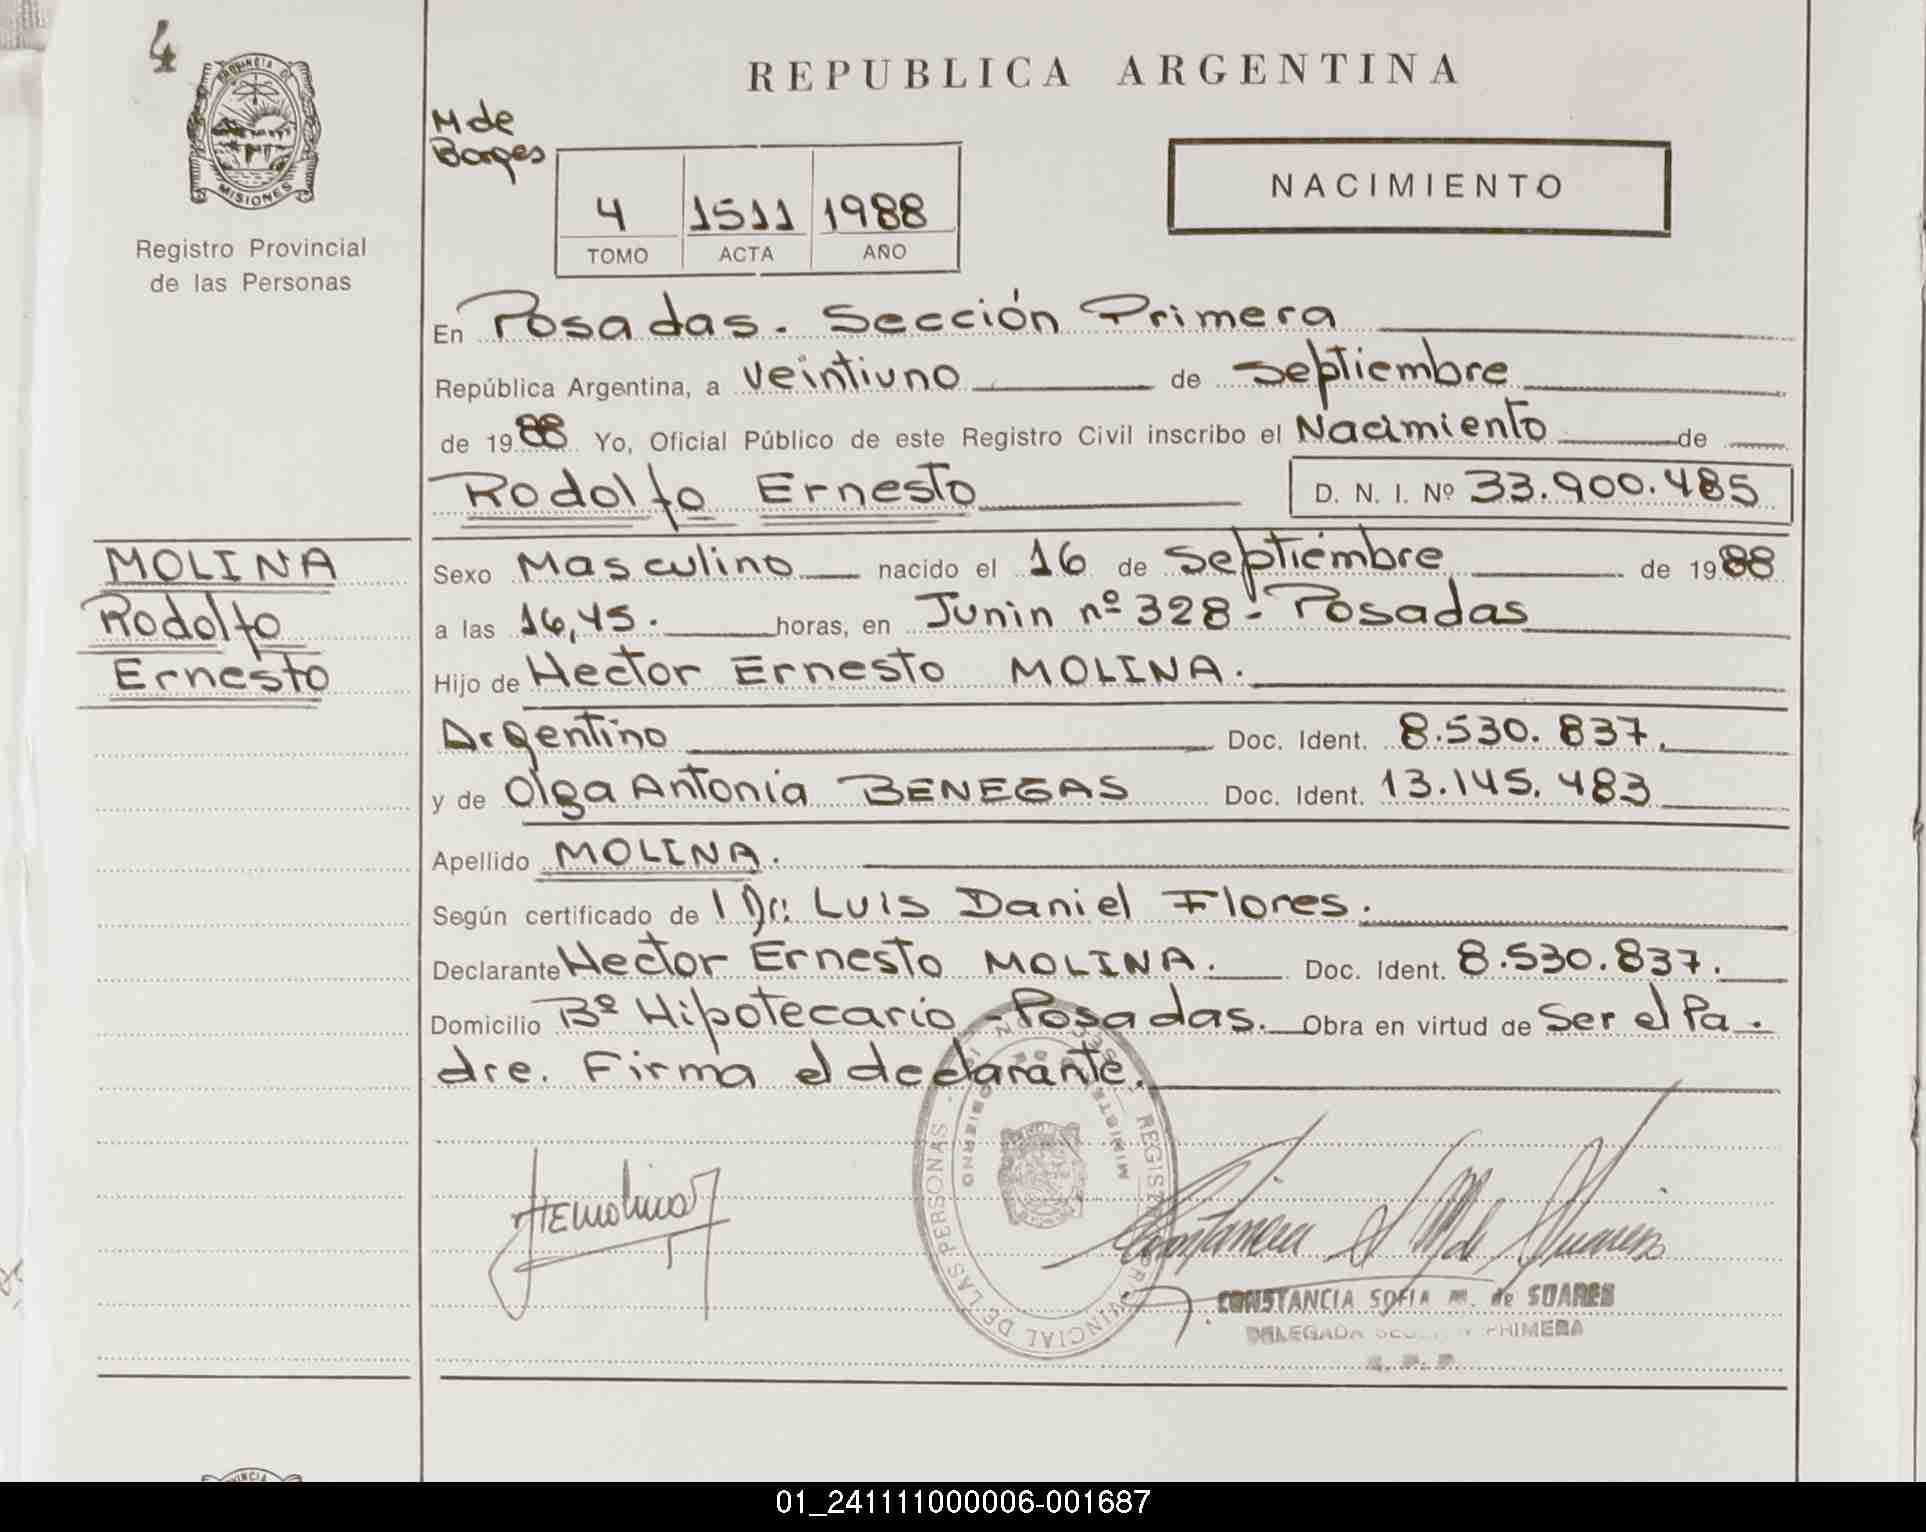 4
PROVINCIA DE
MISIONES
Registro Provincial
de las Personas
REPUBLICA ARGENTINA
M de
Borges
4 1511 1988
TOMO ACTA AÑO
NACIMIENTO
En Posadas. Sección Primera
República Argentina, a veintiuno de septiembre
de 1988 Yo, Oficial Público de este Registro Civil inscribo el Nacimiento de
Rodolfo Ernesto D. N. I. Nº 33.900.485
MOLINA
Rodolfo
Ernesto
Sexo Masculino nacido el 16 de septiembre de 1988
a las 16,45. horas, en Junin nº 328 - Posadas
Hijo de Hector Ernesto MOLINA.
Argentino Doc. Ident. 8.530.837.
y de Olga Antonia BENEGAS Doc. Ident. 13.145.483
Apellido MOLINA.
Según certificado de l Dr: Luis Daniel Flores.
Declarante Hector Ernesto MOLINA. Doc. Ident. 8.530.837.
Domicilio Bº Hipotecario - Posadas. Obra en virtud de Ser el Pa.
dre. Firma el declarante.
HEMolina
REGISTRO PROVINCIAL DE LAS PERSONAS
MINISTERIO DE GOBIERNO
CONSTANCIA SOFIA M. de SUARES
DELEGADA SECCION PRIMERA
R. P. P.
01_241111000006-001687